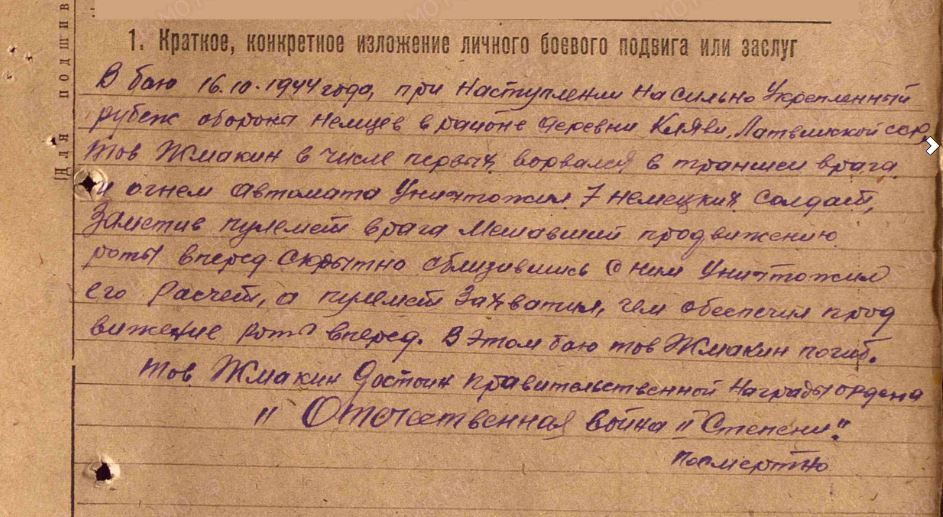 Для подшив
1. Краткое, конкретное изложение личного боевого подвига или заслуг
В бою 16.10.1944 года, при наступлении на сильно укрепленный
рубеж обороны немцев в районе деревни Кляви, Латвийской ССР,
тов Жмакин в числе первых ворвался в траншеи врага
и огнем автомата уничтожил 7 немецких солдат,
Заметив пулемет врага мешавший продвижению
роты вперед. Скрытно сблизившись с ним уничтожил
его расчет, а пулемет захватил, чем обеспечил прод
вижение роты вперед. В этом бою тов Жмакин погиб.
тов Жмакин достоин правительственной награды ордена
"Отечественная война II Степени".
посмертно